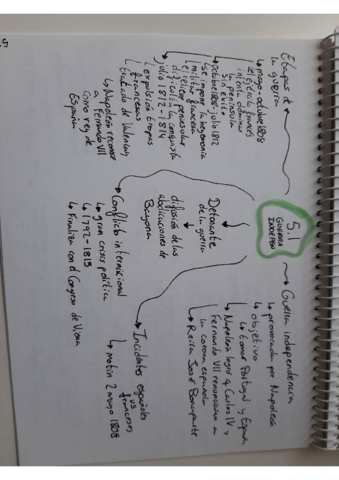 5.1
GUERRA
INDEPEN
↳ Guerra independencia
↳ provocada por Napoleón
↳ objetivo
↳ tomar Portugal y España
↳ Napoleón logró q Carlos IV y
Fernando VII renunciaran a
la corona española
↳ Reina José Bonaparte
Etapas de
la guerra
↳ mayo-octubre 1808
↳ Ejército francés
intenta dominar
la península
sin éxito
↳ octubre 1808-julio 1812
↳ se impone la hegemonía
militar francesa
↳ pelicer peninsular
dificulta la conquista
↳ julio 1812-1814
↳ expulsión tropas
francesas
↳ tratado de Valençay
↳ Napoleón reconoce
a Fernando VII
como rey de
España
Detonante
de la guerra
↓
difusión de las
abdicaciones de
Bayona
↳ Conflicto internacional
↳ gran crisis política
↳ 1792-1815
↳ Finaliza con el Congreso de Viena
↳ Incidentes españoles
vs
franceses
↳ motín 2 mayo 1808